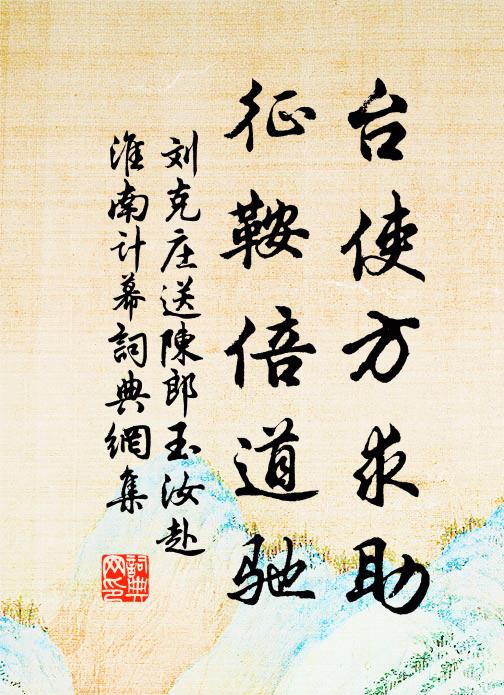 台使方求助
征鞍倍道驰
刘克庄送陳郎玉汝赴
淮南计幕詞典網集
詞典网印